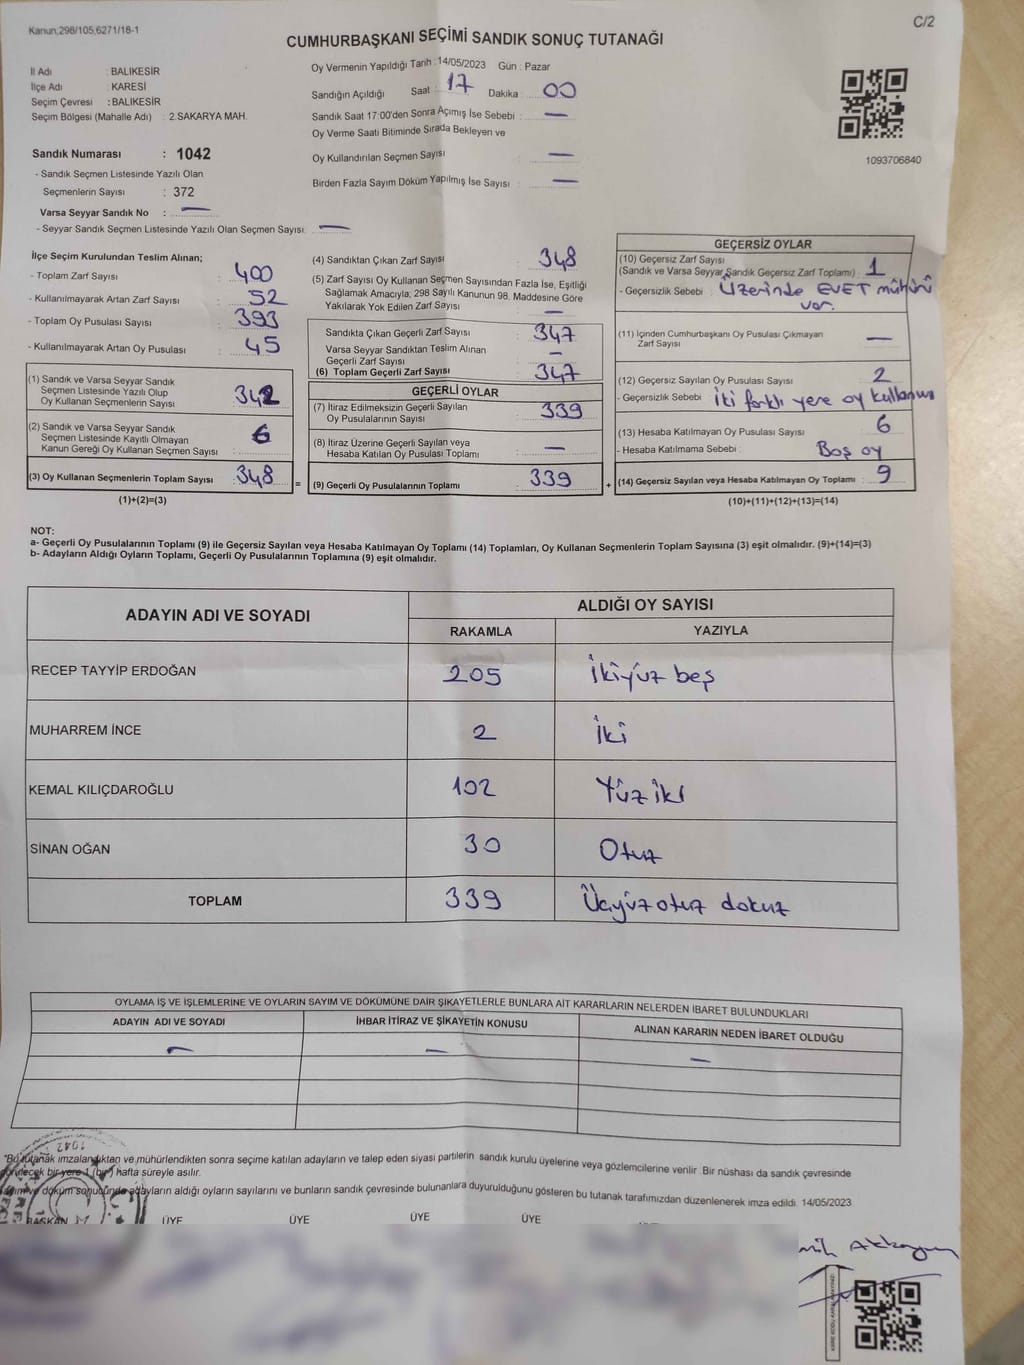 Kanun;298/105,6271/18-1
C/2
CUMHURBAŞKANI SEÇİMİ SANDIK SONUÇ TUTANAĞI
İl Adı : BALIKESİR
İlçe Adı : KARESİ
Seçim Çevresi : BALIKESİR
Seçim Bölgesi (Mahalle Adı) : 2.SAKARYA MAH.
Sandık Numarası : 1042
- Sandık Seçmen Listesinde Yazılı Olan
Seçmenlerin Sayısı : 372
Varsa Seyyar Sandık No : —
- Seyyar Sandık Seçmen Listesinde Yazılı Olan Seçmen Sayısı: —
Oy Vermenin Yapıldığı Tarih : 14/05/2023 Gün : Pazar
Sandığın Açıldığı Saat : 17 Dakika : 00
Sandık Saat 17:00'den Sonra Açımış İse Sebebi : —
Oy Verme Saati Bitiminde Sırada Bekleyen ve
Oy Kullandırılan Seçmen Sayısı : —
Birden Fazla Sayım Döküm Yapılmış İse Sayısı : —
1093706840
İlçe Seçim Kurulundan Teslim Alınan;
- Toplam Zarf Sayısı : 400
- Kullanılmayarak Artan Zarf Sayısı : 52
- Toplam Oy Pusulası Sayısı : 393
- Kullanılmayarak Artan Oy Pusulası : 45
(1) Sandık ve Varsa Seyyar Sandık
Seçmen Listesinde Yazılı Olup
Oy Kullanan Seçmenlerin Sayısı : 342
(2) Sandık ve Varsa Seyyar Sandık
Seçmen Listesinde Kayıtlı Olmayan
Kanun Gereği Oy Kullanan Seçmen Sayısı : 6
(3) Oy Kullanan Seçmenlerin Toplam Sayısı : 348
(1)+(2)=(3)
(4) Sandıktan Çıkan Zarf Sayısı : 348
(5) Zarf Sayısı Oy Kullanan Seçmen Sayısından Fazla İse, Eşitliği
Sağlamak Amacıyla; 298 Sayılı Kanunun 98. Maddesine Göre
Yakılarak Yok Edilen Zarf Sayısı : —
Sandıkta Çıkan Geçerli Zarf Sayısı : 347
Varsa Seyyar Sandıktan Teslim Alınan
Geçerli Zarf Sayısı : —
(6) Toplam Geçerli Zarf Sayısı : 347
GEÇERLİ OYLAR
(7) İtiraz Edilmeksizin Geçerli Sayılan
Oy Pusulasının Sayısı : 339
(8) İtiraz Üzerine Geçerli Sayılan veya
Hesaba Katılan Oy Pusulası Toplamı : —
(9) Geçerli Oy Pusulalarının Toplamı : 339
=
+
GEÇERSİZ OYLAR
(10) Geçersiz Zarf Sayısı
(Sandık ve Varsa Seyyar Sandık Geçersiz Zarf Toplamı) : 1
- Geçersizlik Sebebi : Üzerinde EVET mührü
var.
(11) İçinden Cumhurbaşkanı Oy Pusulası Çıkmayan
Zarf Sayısı : —
(12) Geçersiz Sayılan Oy Pusulası Sayısı : 2
- Geçersizlik Sebebi : İki farklı yere oy kullanımı
(13) Hesaba Katılmayan Oy Pusulası Sayısı : 6
- Hesaba Katılmama Sebebi : Boş oy
(14) Geçersiz Sayılan veya Hesaba Katılmayan Oy Toplamı : 9
(10)+(11)+(12)+(13)=(14)
NOT:
a- Geçerli Oy Pusulalarının Toplamı (9) ile Geçersiz Sayılan veya Hesaba Katılmayan Oy Toplamı (14) Toplamları, Oy Kullanan Seçmenlerin Toplam Sayısına (3) eşit olmalıdır. (9)+(14)=(3)
b- Adayların Aldığı Oyların Toplamı, Geçerli Oy Pusulalarının Toplamına (9) eşit olmalıdır.
ADAYIN ADI VE SOYADI
ALDIĞI OY SAYISI
RAKAMLA YAZIYLA
RECEP TAYYİP ERDOĞAN 205 İkiyüz beş
MUHARREM İNCE 2 İki
KEMAL KILIÇDAROĞLU 102 Yüz iki
SİNAN OĞAN 30 Otuz
TOPLAM 339 Üçyüz otuz dokuz
OYLAMA İŞ VE İŞLEMLERİNE VE OYLARIN SAYIM VE DÖKÜMÜNE DAİR ŞİKAYETLERLE BUNLARA AİT KARARLARIN NELERDEN İBARET BULUNDUKLARI
ADAYIN ADI VE SOYADI İHBAR İTİRAZ VE ŞİKAYETİN KONUSU ALINAN KARARIN NEDEN İBARET OLDUĞU
— — —
1042
*Bu tutanak imzalandıktan ve mühürlendikten sonra seçime katılan adayların ve talep eden siyasi partilerin sandık kurulu üyelerine veya gözlemcilerine verilir. Bir nüshası da sandık çevresinde
görülecek bir yere 1 (bir) hafta süreyle asılır.
ve döküm sonucunda adayların aldığı oyların sayılarını ve bunların sandık çevresinde bulunanlara duyurulduğunu gösteren bu tutanak tarafımızdan düzenlenerek imza edildi. 14/05/2023
BAŞKAN ÜYE ÜYE ÜYE ÜYE